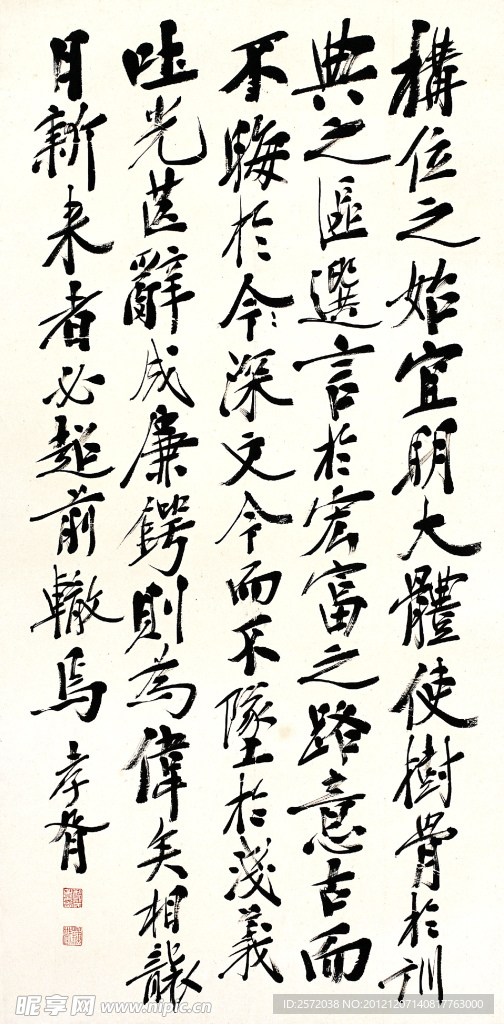 構位之始宜明大體使樹骨於訓
典之區選言於宏富之路意古而
不晦於今深文今而不墜於淺義
吐光芒辭成廉鍔則為偉矣相襲
日新来者必超前轍焉 孝胥
昵享网 www.nipic.cn
ID:2572038 NO:20121207140817763000